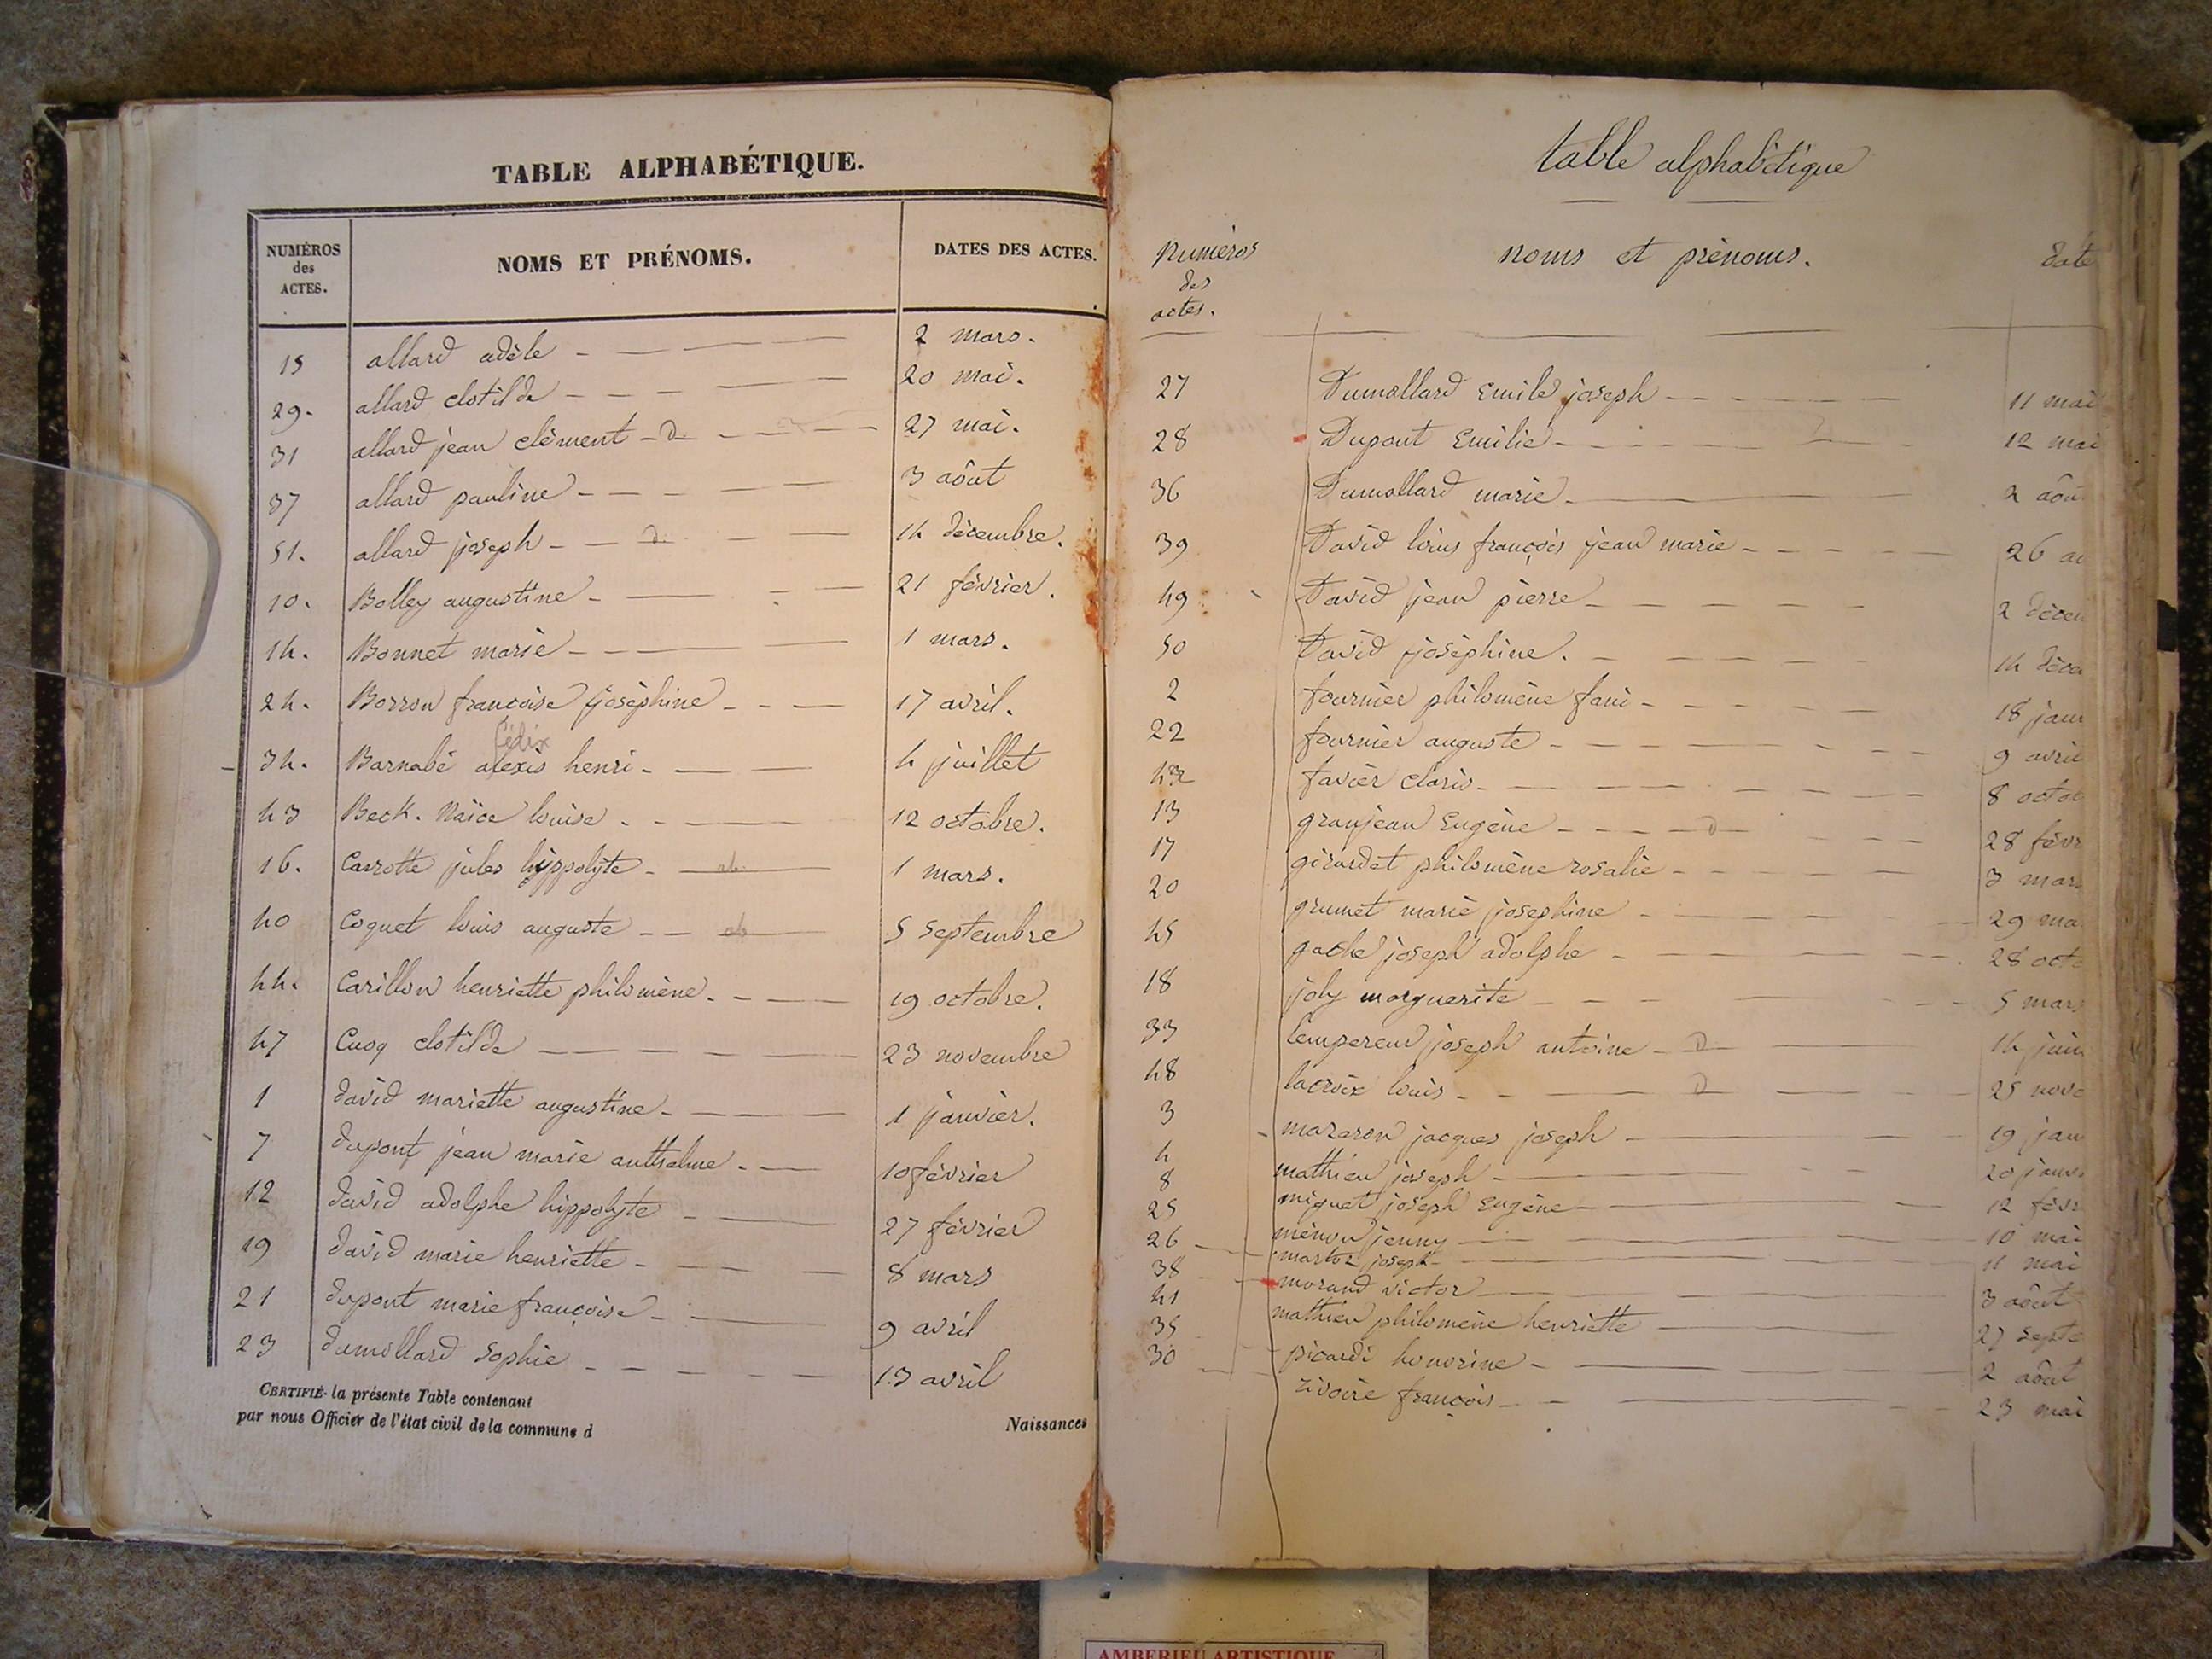 TABLE ALPHABÉTIQUE.
NUMÉROS des ACTES. NOMS ET PRÉNOMS. DATES DES ACTES.
15 allard adèle 2 mars.
29. allard clotilde 20 mai.
31 allard jean clément D 27 mai.
37 allard pauline 3 aôut
51. allard joseph D 14 décembre.
10. Bolley augustine 21 février.
14. Bonnet marie 1 mars.
24. Borron francoise joséphine 17 avril.
félix
34. Barnabé alexis henri 4 juillet
43 Beck. Naïce louise 12 octobre.
16. Carrotte jules hyppolyte ab 1 mars.
40 Coquet louis auguste ab 5 septembre
44. Carillon henriette philomène. 19 octobre.
47 Cuoq clotilde 23 novembre
1 david mariette augustine 1 janvier.
7 dupont jean marie anthelme 10 février
12 david adolphe hippolyte 27 février
19 david marie henriette 8 mars
21 dupont marie françoise 9 avril
23 dumollard sophie 13 avril
CERTIFIÉ la présente Table contenant
par nous Officier de l'état civil de la commune d
Naissances
table alphabétique
Numéros des actes. noms et prénoms. date
27 Dumollard Emile joseph 11 mai
28 Dupont Emilie 12 mai
36 Dumollard marie 2 aôu
39 David louis françois jean marie 26 ao
49 David jean pierre 2 décem
50 David joséphine. 14 déce
2 fournier philomène fani 18 janv
22 fournier auguste 9 avril
42 favier claris 8 octob
13 granjean Eugène D 28 févr
17 girardet philomène rosalie 3 mars
20 grumet marie josephine 29 ma
45 gache joseph adolphe 28 octo
18 joly marguerite 5 mars
33 lempereur joseph antoine D 14 juin
48 lacroix louis D 25 nove
3 mazaron jacques joseph 19 jan
4 mathieu joseph 20 janv
8 miguet joseph Eugène 12 févr
25 ménon jenny 10 mai
26 martoz joseph 11 mai
38 morand victor 3 aôut
41 mathieu philomène henriette 27 septe
35 picardi honorine 2 aôut
30 rivoire françois 23 mai
AMBERIEU ARTISTIQUE